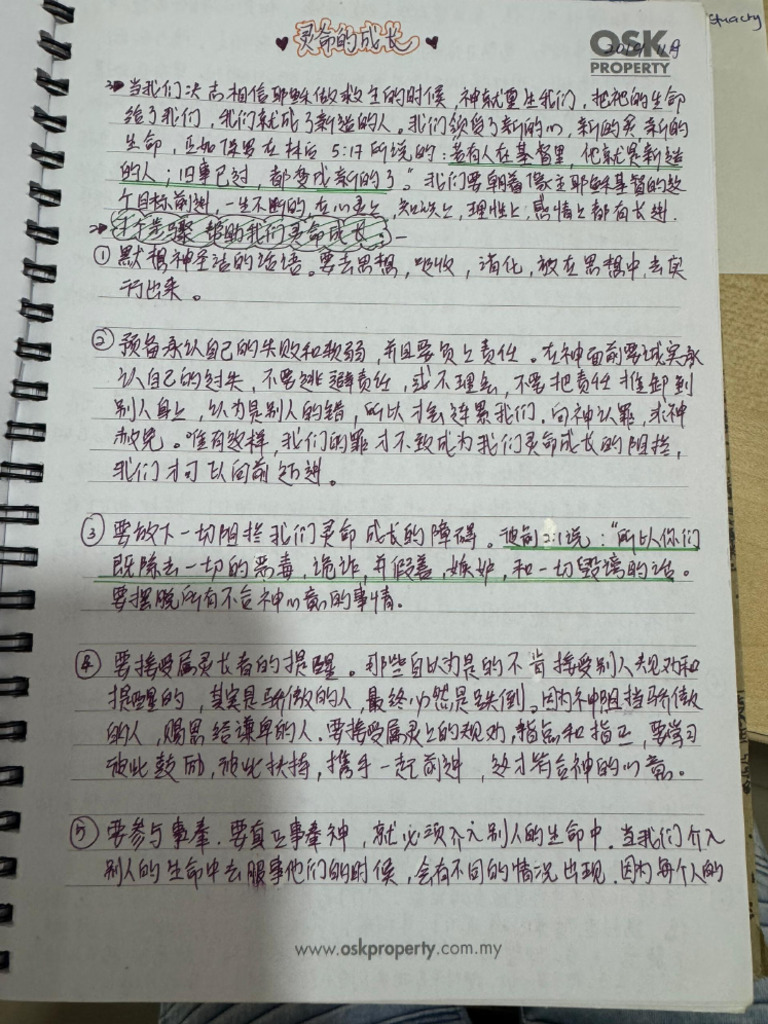 灵命的成长
OSK
PROPERTY
当我们决志相信耶稣做救主的时候,神就重生我们,把祂的生命
给了我们,我们就成了新造的人。我们领受了新的心,新的灵,新的
生命,正如保罗在林后 5:17 所说的:若有人在基督里,他就是新造
的人;旧事已过,都变成新的了。"我们要朝着像主耶稣基督的这
个目标前进,一生不断的,在心灵上,知识上,理性上,感情上都有长进.
步骤 帮助我们灵命成长:-
① 默想神圣洁的话语。要去思想,吸收,消化,放在思想中,去实
行出来。
② 预备承认自己的失败和软弱,并且要负上责任。在神面前要诚实承
认自己的过失,不要逃避责任,或不理会,不要把责任推卸到
别人身上,认为是别人的错,所以才会连累我们.向神认罪,求神
赦免。唯有这样,我们的罪才不致成为我们灵命成长的阻挡,
我们才可以向前迈进。
③ 要放下一切阻拦我们灵命成长的障碍。彼前2:1说:"所以你们
既除去一切的恶毒,诡诈,并假善,嫉妒,和一切毁谤的话。
要摆脱所有不合神心意的事情.
④ 要接受属灵长者的提醒。那些自以为是的不肯接受别人规劝和
提醒的,其实是骄傲的人,最终必然是跌倒.因为神阻挡骄傲
的人,赐恩给谦卑的人.要接受属灵上的规劝,指点和指正,要学习
彼此鼓励,彼此扶持,携手一起前进,这才符合神的心意。
⑤ 要参与事奉.要真正事奉神,就必须介入别人的生命中.当我们介入
别人的生命中去服事他们的时候,会有不同的情况出现.因为每个人的
www.oskproperty.com.my